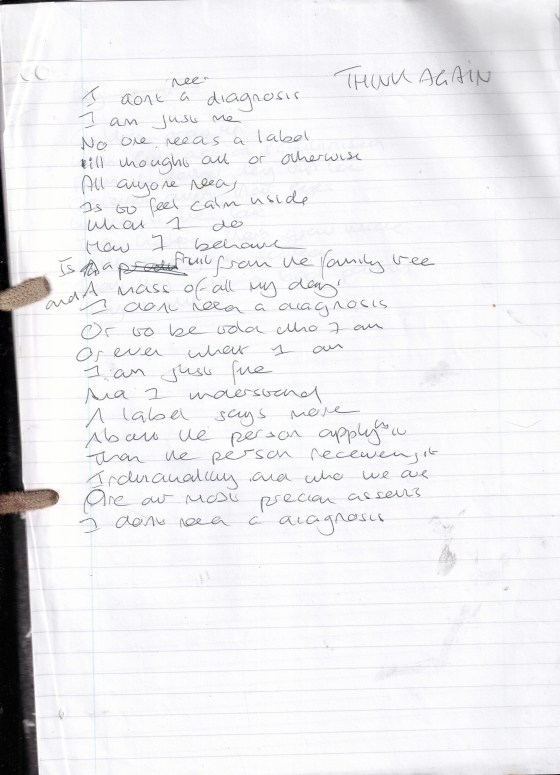 THINK AGAIN
need
I dont a diagnosis
I am just me
No one needs a label
ill thought out or otherwise
All anyone needs
Is to feel calm inside
What I do
How I behave
Is a fruit from the family tree
and A mass of all my days
I dont need a diagnosis
Or to be told who I am
Or even what I am
I am just fine
And I understand
A label says more
About the person applying it
Than the person receiveing it
Individuality and who we are
Are our most precious assets
I dont need a diagnosis